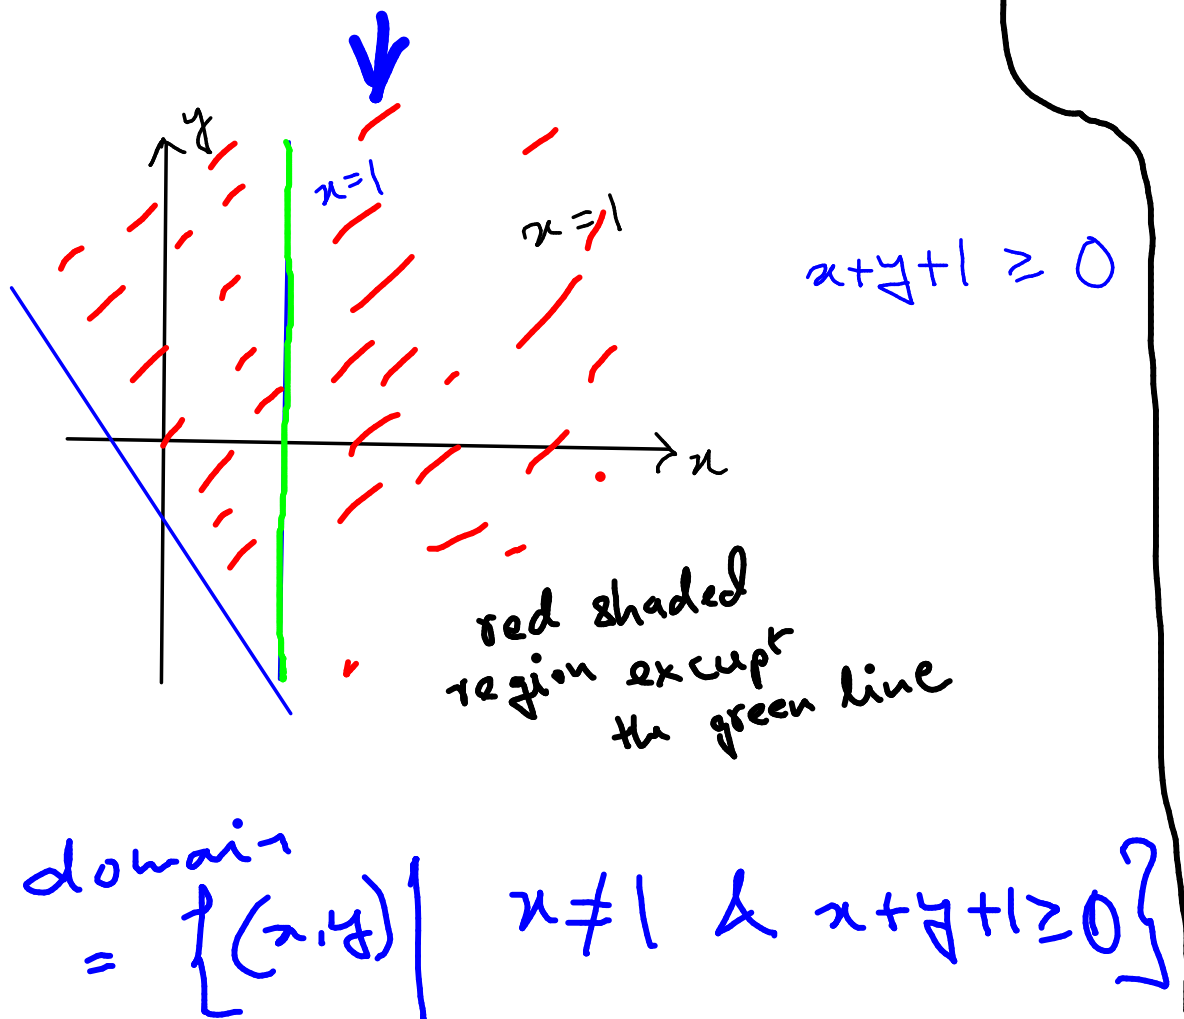 y
x=1
x=1
x+y+1 ≥ 0
x
red shaded
region except
the green line
domain
= {(x,y)| x≠1 & x+y+1≥0}